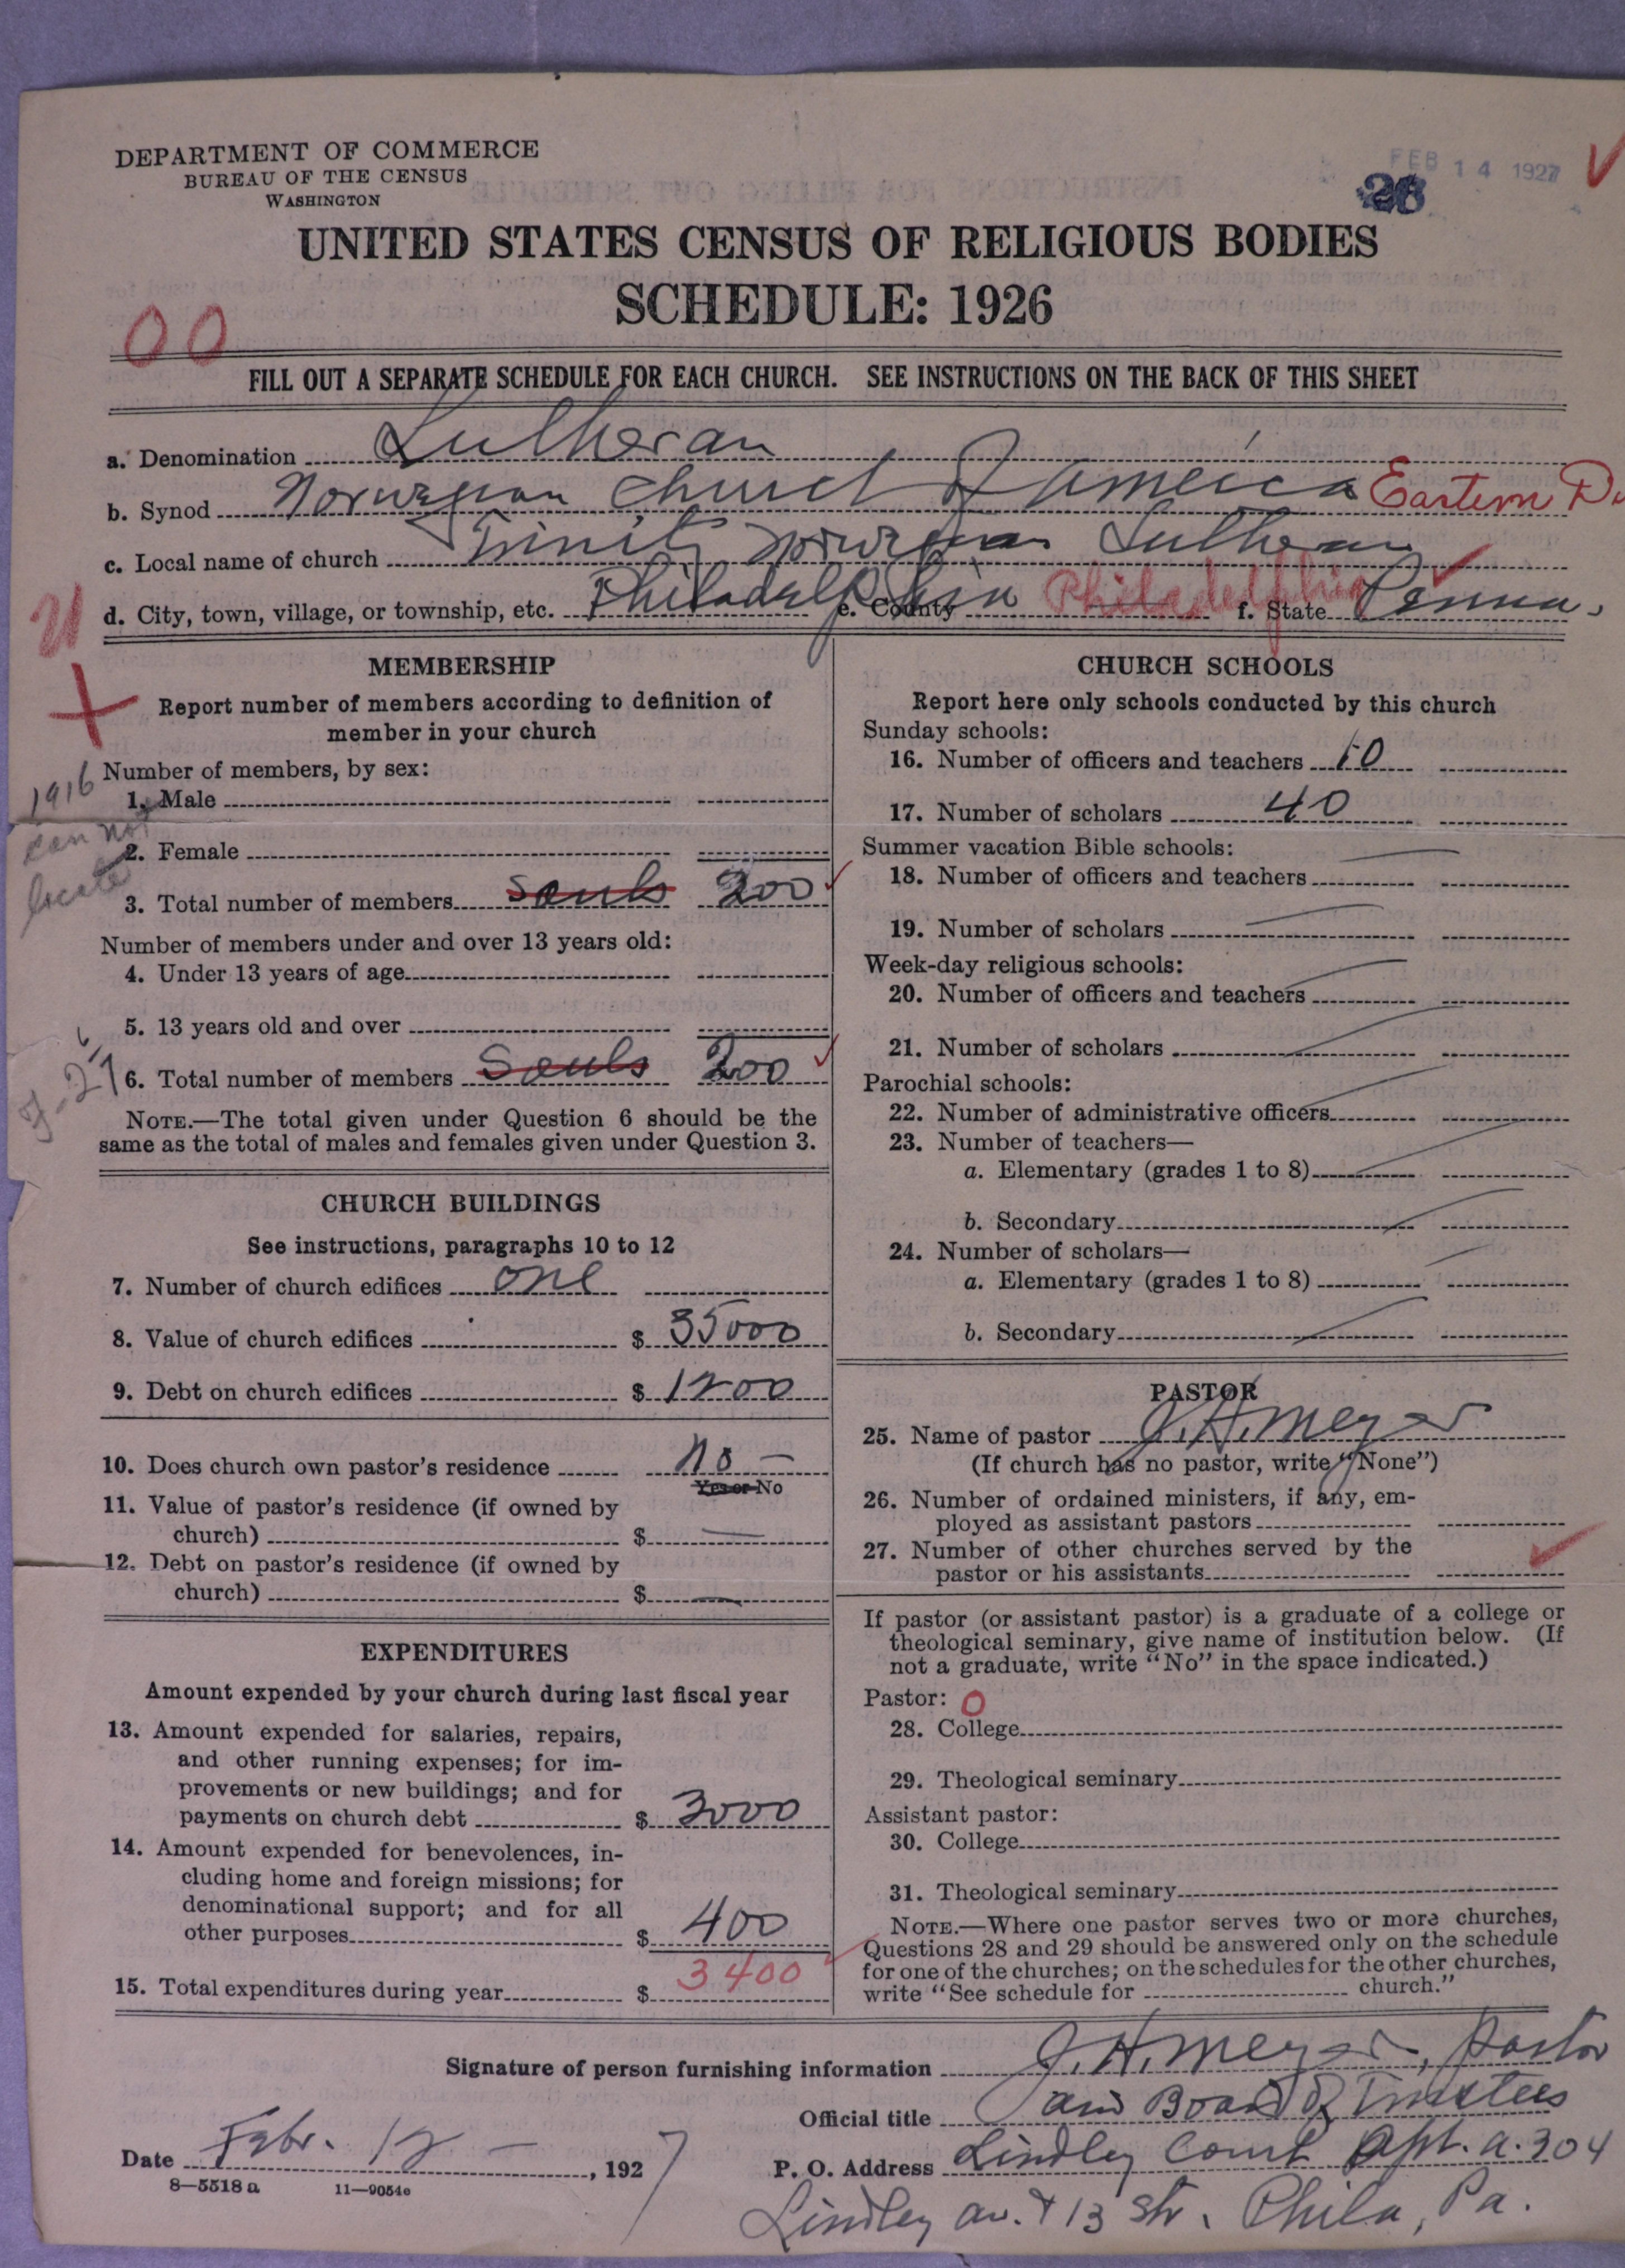 DEPARTMENT OF COMMERCE
BUREAU OF THE CENSUS
WASHINGTON
FEB 14 1927
UNITED STATES CENSUS OF RELIGIOUS BODIES
SCHEDULE: 1926
00
FILL OUT A SEPARATE SCHEDULE FOR EACH CHURCH. SEE INSTRUCTIONS ON THE BACK OF THIS SHEET
a. Denomination Lutheran
b. Synod Norwegian Church of America Eastern
c. Local name of church Trinity Norwegian Lutheran
d. City, town, village, or township, etc. Philadelphia e. County Philadelphia f. State Penna.
MEMBERSHIP
Report number of members according to definition of
member in your church
Number of members, by sex:
1916
can not
locate
1. Male
2. Female
3. Total number of members Souls 200
Number of members under and over 13 years old:
4. Under 13 years of age
5. 13 years old and over
6. Total number of members Souls 200
NOTE.—The total given under Question 6 should be the
same as the total of males and females given under Question 3.
CHURCH BUILDINGS
See instructions, paragraphs 10 to 12
7. Number of church edifices one
8. Value of church edifices $ 35000
9. Debt on church edifices $ 1200
10. Does church own pastor's residence no —
Yes or No
11. Value of pastor's residence (if owned by
church) $ —
12. Debt on pastor's residence (if owned by
church) $ —
EXPENDITURES
Amount expended by your church during last fiscal year
13. Amount expended for salaries, repairs,
and other running expenses; for im-
provements or new buildings; and for
payments on church debt $ 3000
14. Amount expended for benevolences, in-
cluding home and foreign missions; for
denominational support; and for all
other purposes $ 400
15. Total expenditures during year $ 3400
CHURCH SCHOOLS
Report here only schools conducted by this church
Sunday schools:
16. Number of officers and teachers 10
17. Number of scholars 40
Summer vacation Bible schools:
18. Number of officers and teachers
19. Number of scholars
Week-day religious schools:
20. Number of officers and teachers
21. Number of scholars
Parochial schools:
22. Number of administrative officers
23. Number of teachers—
a. Elementary (grades 1 to 8)
b. Secondary
24. Number of scholars—
a. Elementary (grades 1 to 8)
b. Secondary
PASTOR
25. Name of pastor J. H. Meyer
(If church has no pastor, write "None")
26. Number of ordained ministers, if any, em-
ployed as assistant pastors
27. Number of other churches served by the
pastor or his assistants
If pastor (or assistant pastor) is a graduate of a college or
theological seminary, give name of institution below. (If
not a graduate, write "No" in the space indicated.)
Pastor: 0
28. College
29. Theological seminary
Assistant pastor:
30. College
31. Theological seminary
NOTE.—Where one pastor serves two or more churches,
Questions 28 and 29 should be answered only on the schedule
for one of the churches; on the schedules for the other churches,
write "See schedule for church."
Signature of person furnishing information J. H. Meyer, Pastor
Official title and Board of Trustees
Date Febr. 12 — , 1927
P. O. Address Lindley Court Apt. A. 304
Lindley av. & 13 Str. Phila, Pa.
8—5518 a 11—9054c